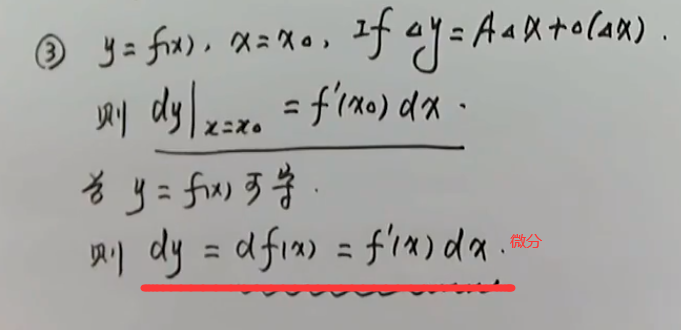 ③ y = f(x), x = x₀, If Δy = AΔx + o(Δx).
则 dy|ₓ₌ₓ₀ = f'(x₀) dx.
若 y = f(x) 可导.
则 dy = df(x) = f'(x) dx. 微分